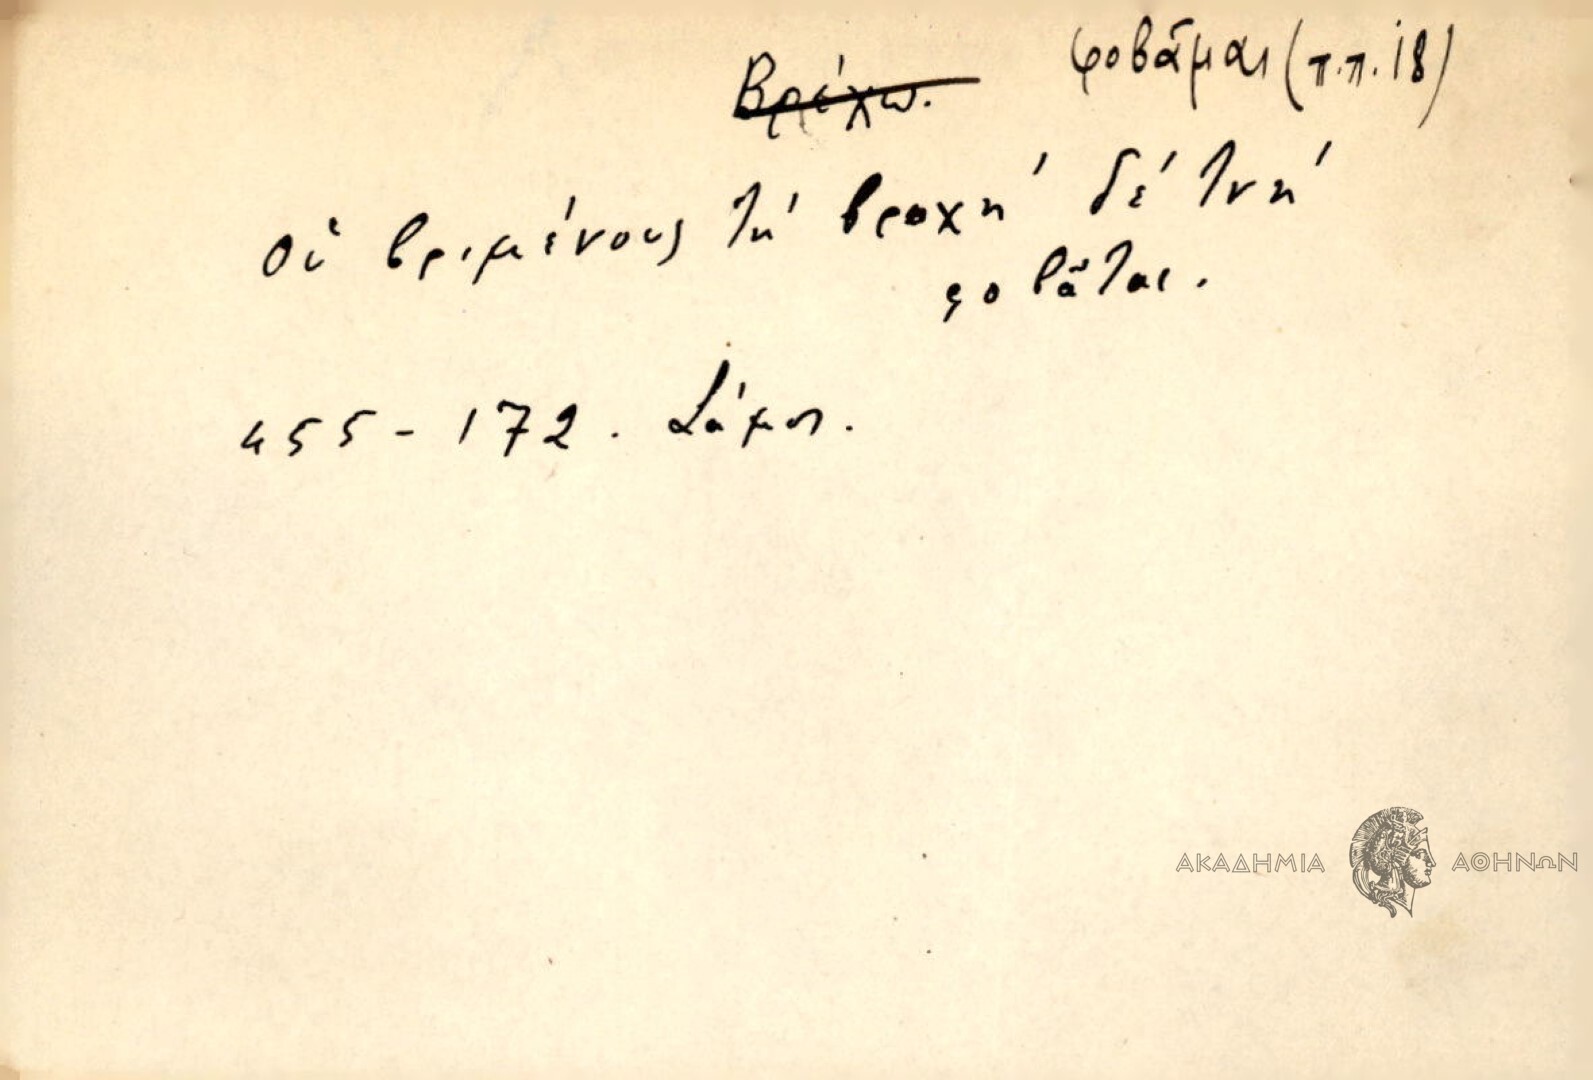 Βρέχω. φοβᾶμαι (π.π. 18)
Οὑ βριμένους τή βρουχή δέ τνή
φοβᾶται.
455-172. Σάμος.
ΑΚΑΔΗΜΙΑ ΑΘΗΝΩΝ